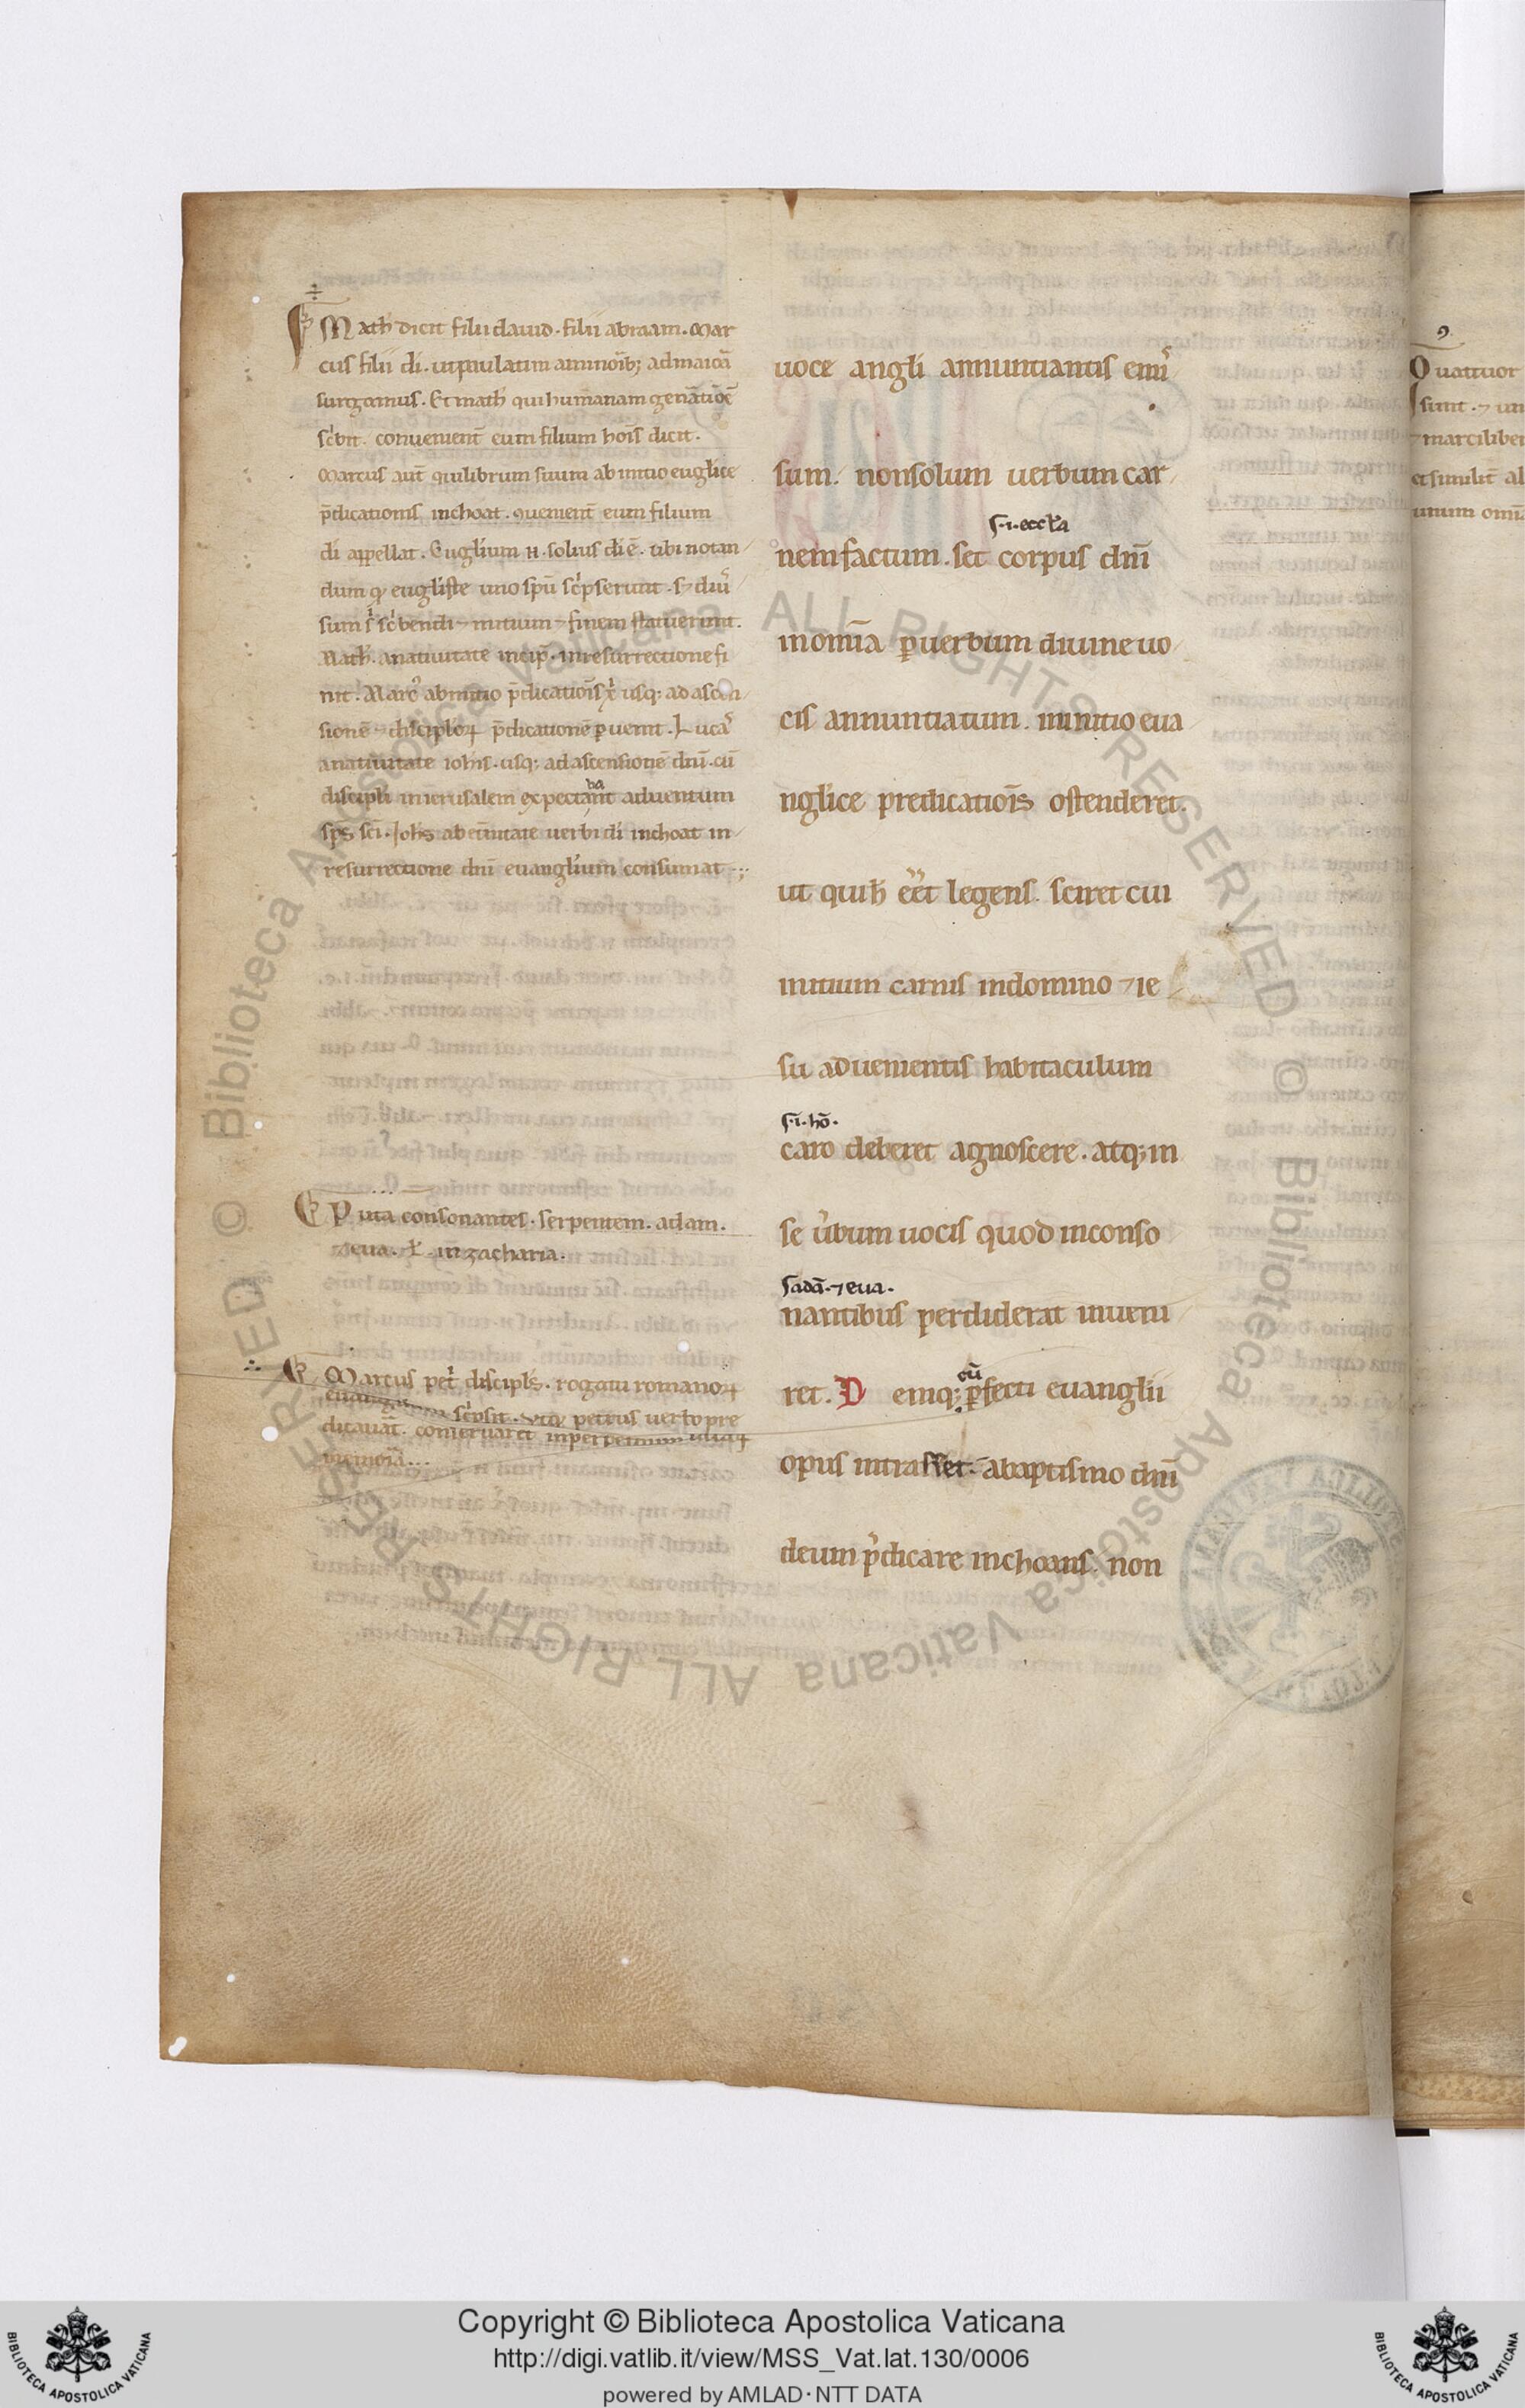 Math̄ dicit filii dauid. filii abraam. Mar
cus filii dī. ut paulatim a minorib; ad maiorā
surgamus. Et math̄ qui humanam gen̄atiōē
sc̓bit. conuenient̄ eum filium hoīs dicit.
Marcus aut̄ qui librum suum ab initio euglīce
p̄dicationis inchoat. 9uenient̄ eum filium
dī appellat. Euglīum n̄. solius dī ē. tibi notan
dum qͥ euglīste uno spū sc̓pserunt. s; diu̓
sum sc̓bendi ⁊ initium ⁊ finem statuerunt.
Math̄. a natiuitate incip̄. in resurrectione fi
nit. Marcꝰ ab initio p̄dicatiōīs xͥ usq; ad ascen
sionē ⁊ discipłoꝝ p̄dicationē ꝑuenit. Lucas
a natiuitate ioh̄is. usq; ad ascensionē dn̄i. cū
discipłi in ierusalem expectabant aduentum
sp̄s sc̄i. Joh̄s ab et̓nitate uerbi dī inchoat in
resurrectione dn̄i euanglīum consumat
Puta consonantes. serpentem. adam.
⁊ eua. ł. in zacharia.
Marcus pet̓ discipłs. rogatu romanoꝝ
sc̓psit. petrus uerbo pre
dicauāt. conseruaret in perpetuum
memoīā.
uoce anglī annuntiantis emi̓
sum. non solum uerbum car
s. i. eccl̄a
nem factum. set corpus dn̄i
in om̄ia ꝑ uerbum diuine uo
cis annuntiatum. in initio eua
nglīce predicatiōīs ostenderet.
ut quilib̄ eēt legens. sciret cui
initium carnis in domino ⁊ ie
su aduenientis habitaculum
s. i. hō.
caro deberet agnoscere. atq; in
se u̓bum uocis quod in conso
s adā. ⁊ eua.
nantibus perdiderat inueni
cū
ret. Deniq; ꝑfecti euanglīi
opus intrasset. ⁊ a baptismo dn̄i
deum p̓dicare inchoans. non
Quattuor
sunt. ⁊ un
⁊ marci liber
et similit̄ al
unum omīa
© Biblioteca Apostolica Vaticana ALL RIGHTS RESERVED © Biblioteca Apostolica Vaticana ALL RIGHTS RESERVED
Copyright © Biblioteca Apostolica Vaticana
http://digi.vatlib.it/view/MSS_Vat.lat.130/0006
powered by AMLAD·NTT DATA
BIBLIOTECA APOSTOLICA VATICANA
BIBLIOTECA APOSTOLICA VATICANA